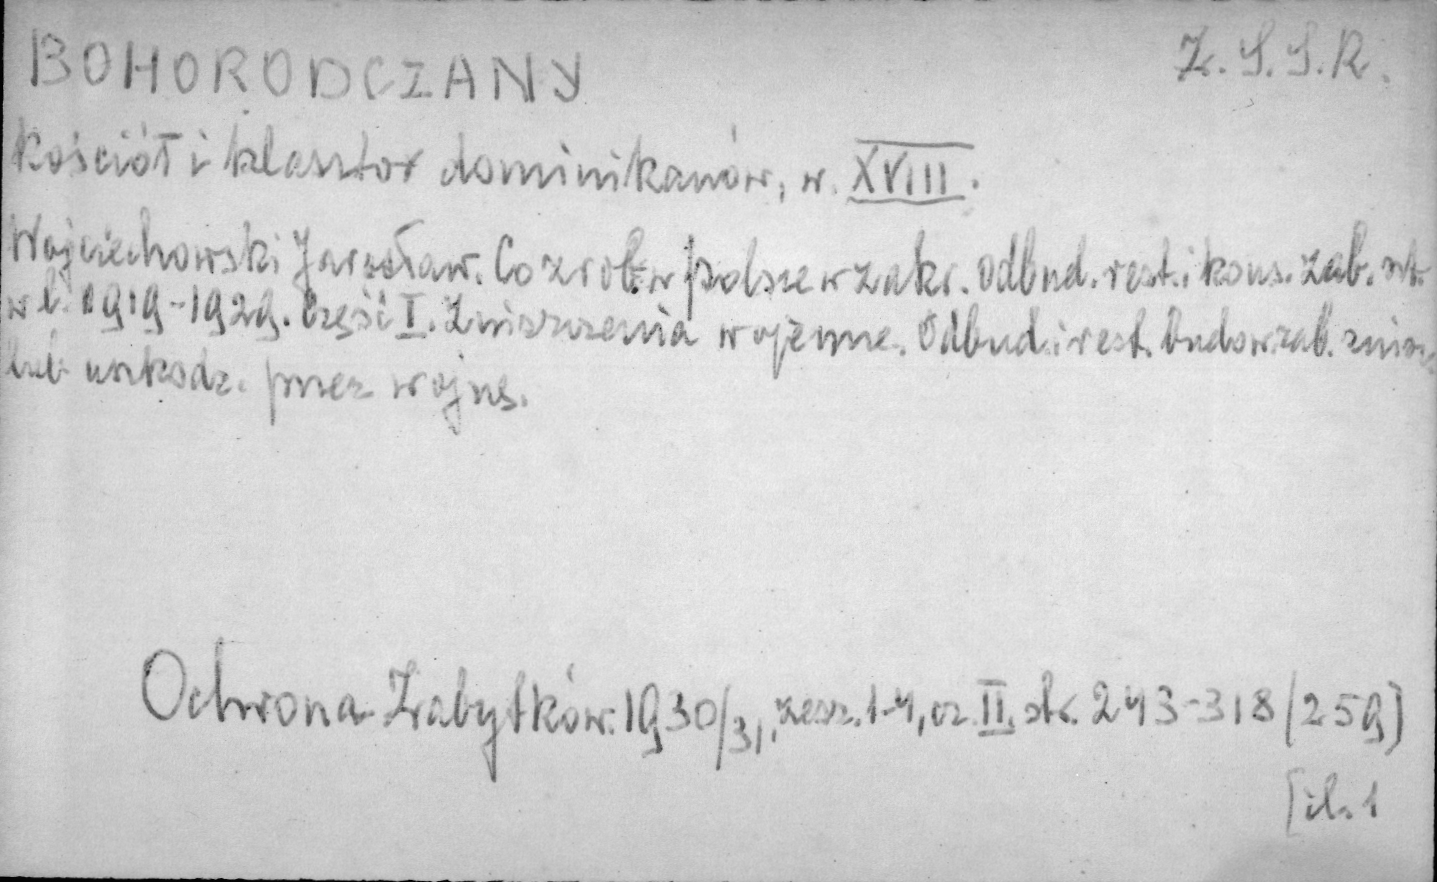 BOHORODCZANY Z.S.S.R.
Kościół i klasztor dominikanów, w. XVIII.
Wojciechowski Jarosław. Co zrob. w Polsce w zakr. odbud. rest. i kons. zab. szt.
w l. 1919-1929. Część I. Zniszczenia wojenne. Odbud. i rest. budow. zab. zniszcz.
lub uszkodz. przez wojnę.
Ochrona Zabytków. 1930/31, zesz. 1-4, cz. II, str. 243-318 (259)
[il. 1